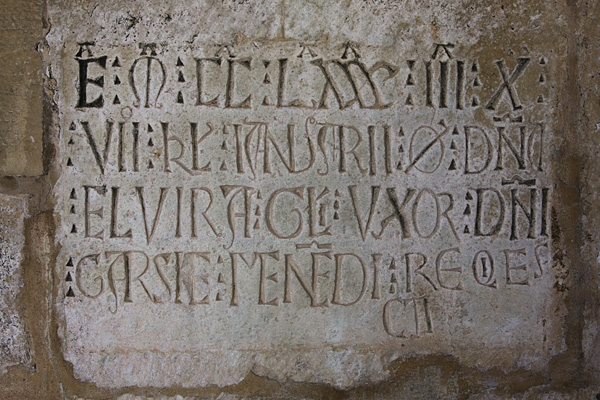 E : M : CC : LXXX : IIII : X
VII : KL : IANUARII : O : DNA
ELVIRA : GLI : VXOR : DNI
GARSIE : MENEDI : REQIES
CIT